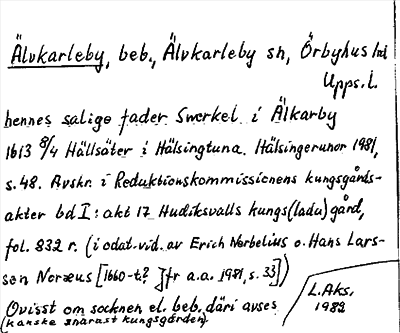 Älvkarleby, beb., Älvkarleby sn, Örbyhus hd
Upps.l.
hennes salige fader Swerkel i Älkarby
1613 8/4 Hällsäter i Hälsingtuna. Hälsingerunor 1981,
s.48. Avskr. i Reduktionskommissionens kungsgårds-
akter bd I: akt 17 Hudiksvalls kungs(ladu)gård,
fol. 832 r. (i odat. vid. av Erich Norbelius o. Hans Lars-
son Noræus [1660-t.? jfr a.a. 1981, s. 33])
Ovisst om socknen el. beb. däri avses
(kanske snarast kungsgården).
L.Aks.
1982